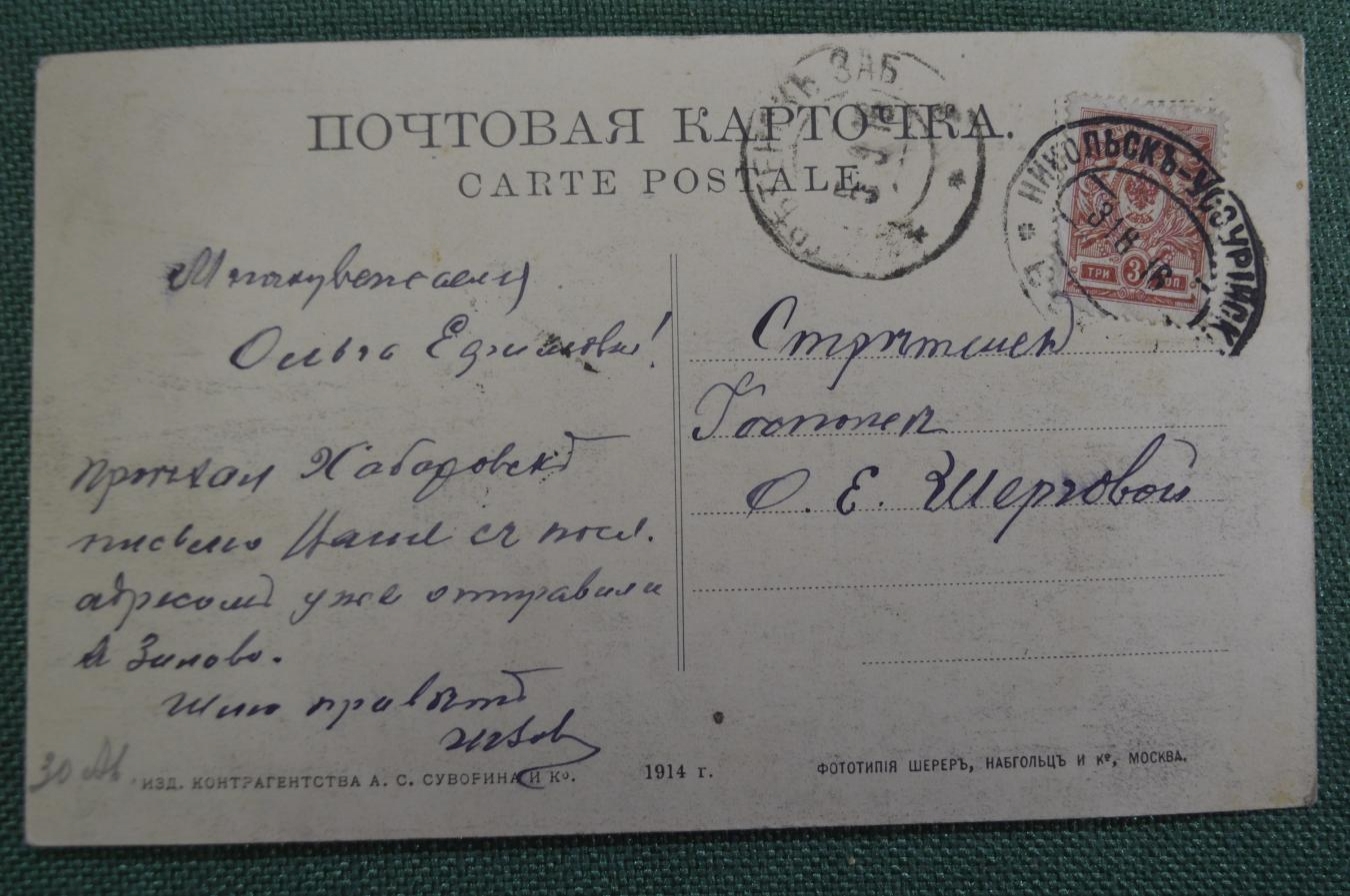 ПОЧТОВАЯ КАРТОЧКА.
CARTE POSTALE
СРѢТЕНСКЪ ЗАБ
НИКОЛЬСКЪ-УССУРІЙСК.
ТРИ 3 КОП
Многоуважаемая
Ольга Ефимовна!
проѣхал Хабаровскъ
письмо Ваше съ посл.
адресомъ уже отправили
Шлю привѣтъ
Срѣтенск
Госпоже
О. Е. Шерговой
30 Ав
ИЗД. КОНТРАГЕНТСТВА А. С. СУВОРИНА И Ко.
1914 г.
ФОТОТИПІЯ ШЕРЕРЪ, НАБГОЛЬЦЪ И Ко, МОСКВА.